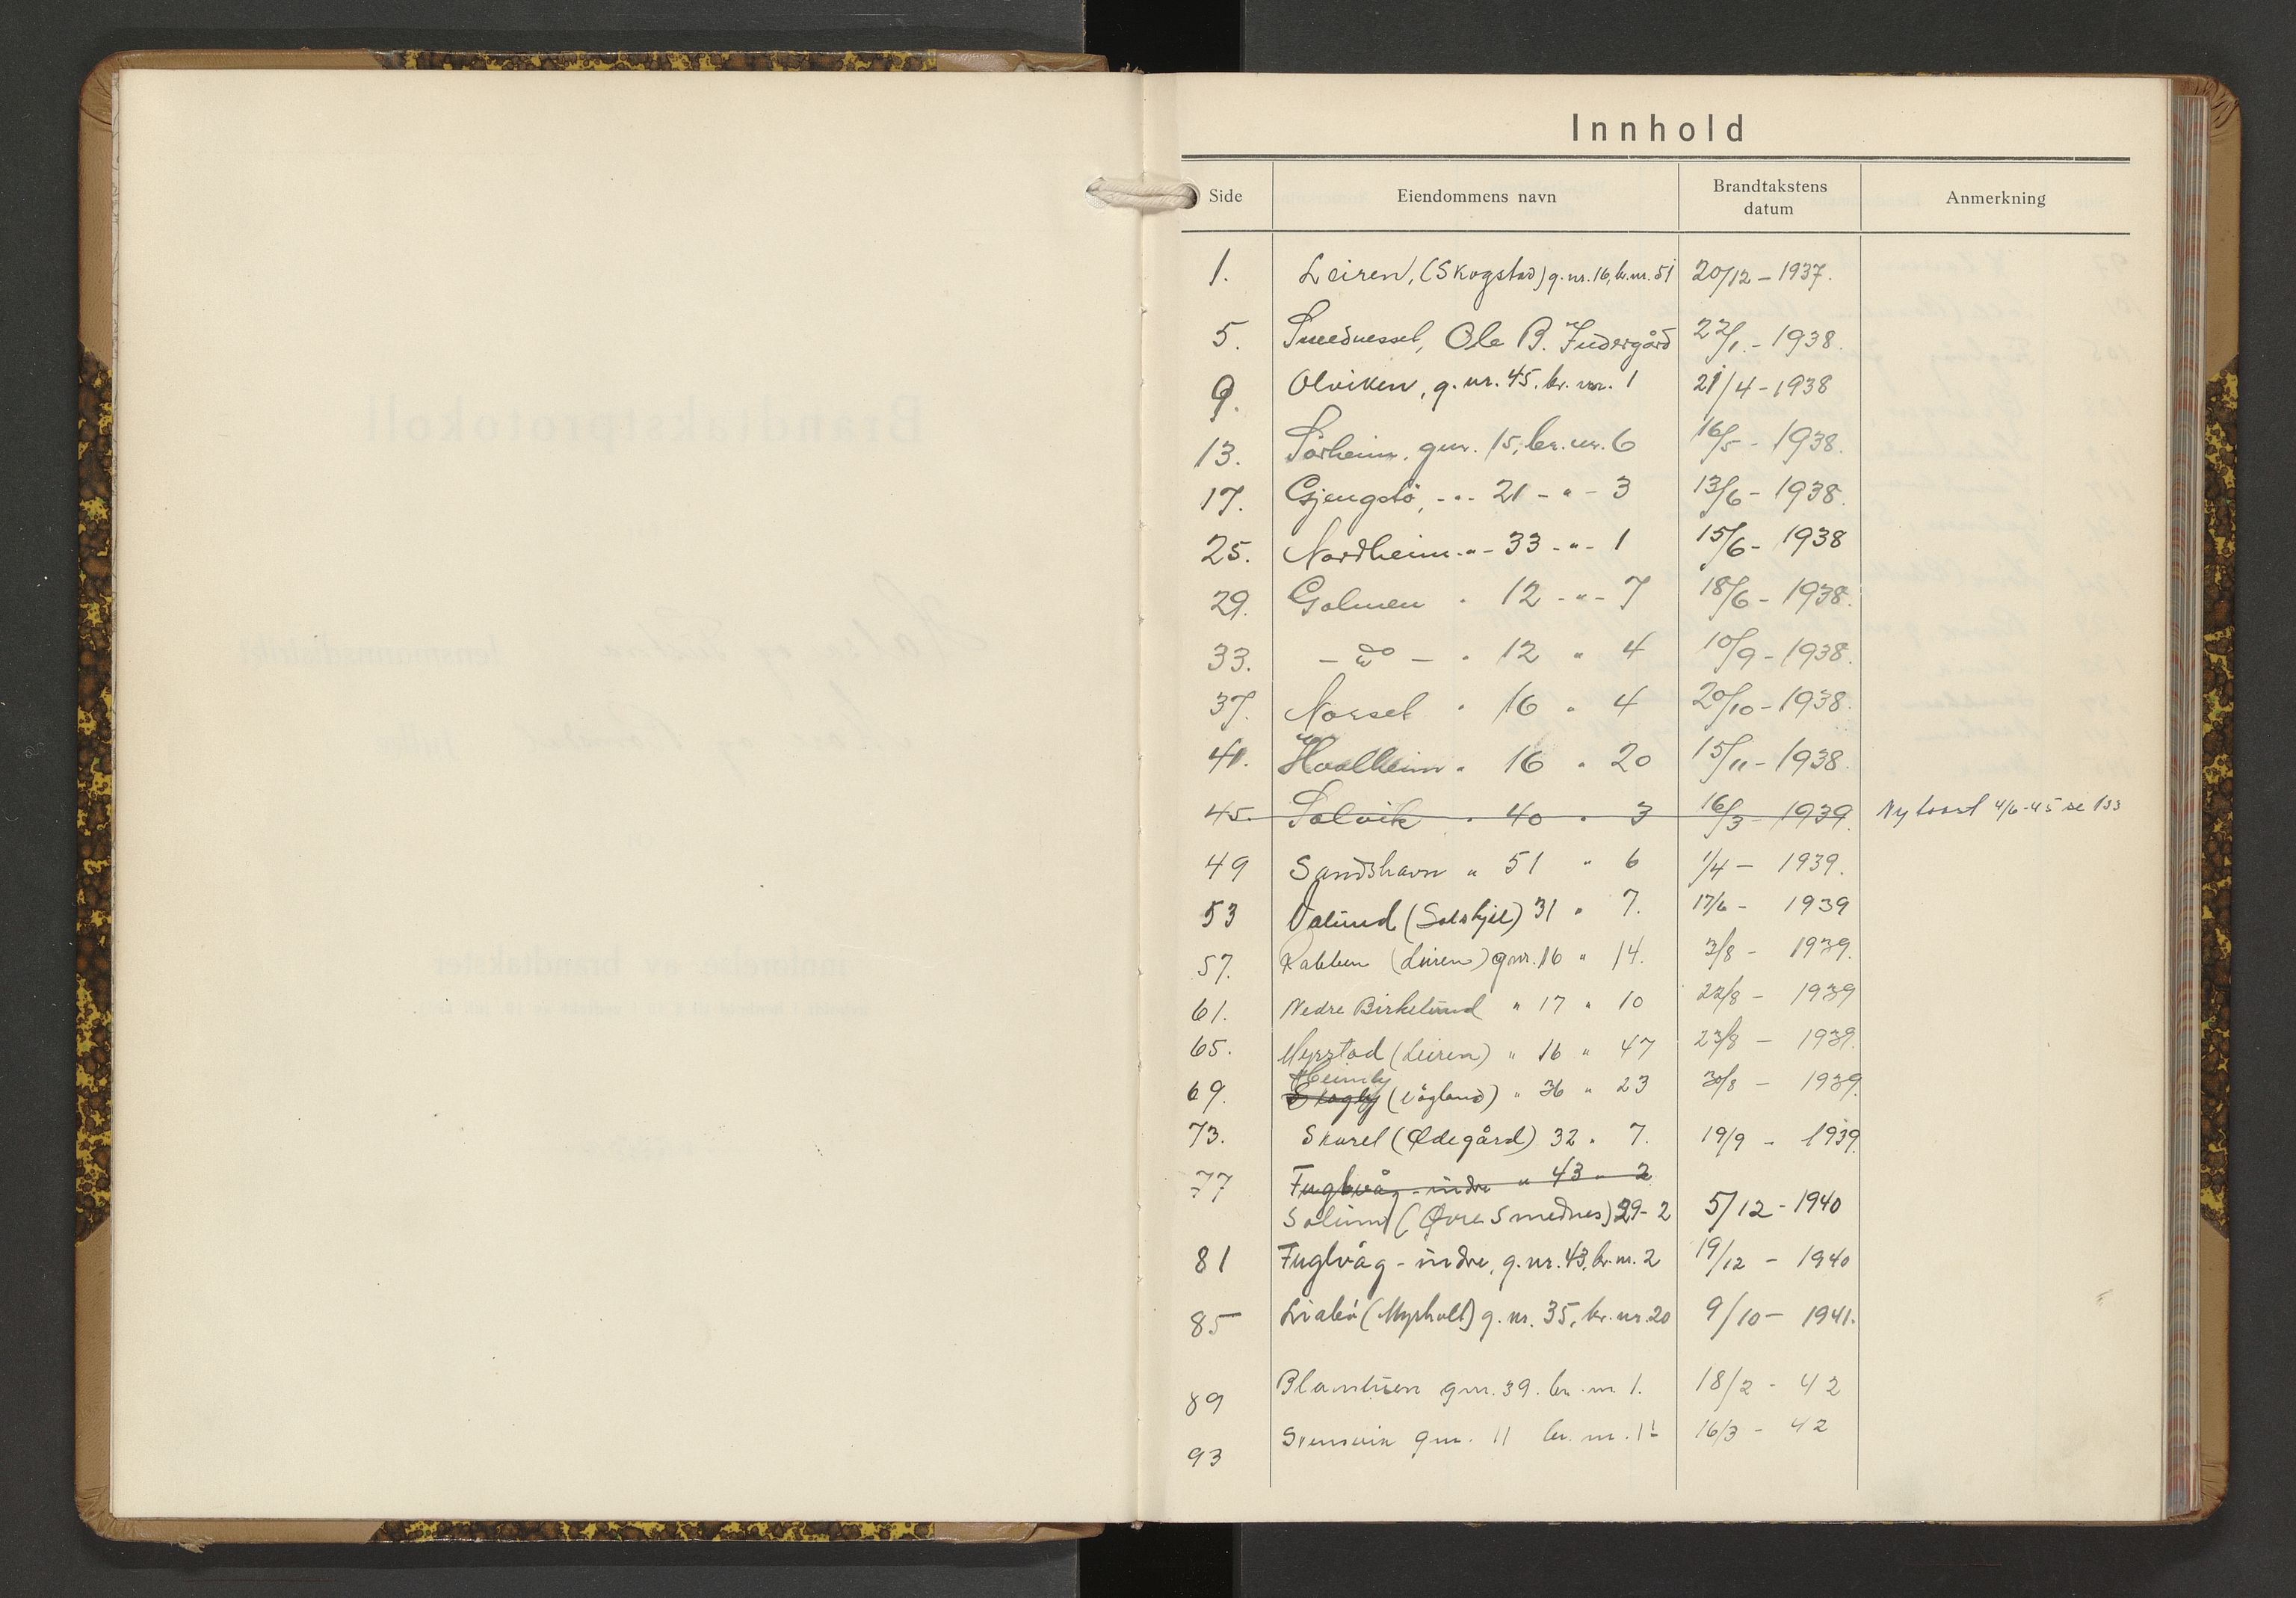 Innhold
Side Eiendommens navn Brandtakstens datum Anmerkning
1. Leiren, (Skogstad) g.nr. 16, br.nr. 51 20/12 - 1937.
5. Smednesset, Ole B. Indergård 22/1. - 1938.
9. Olviken, g. nr. 45, br. nr. 1 21/4 - 1938
13. Sørheim, gnr. 15, br. nr. 6 16/5 - 1938.
17. Gjengstø, - " - 21 - " - 3 13/6 - 1938.
25. Nordheim - " - 33 - " - 1 15/6 - 1938
29. Golmen " 12 - " - 7 18/6 - 1938.
33. - do - " 12 " 4 10/9 - 1938.
37. Norset " 16 " 4 20/10 - 1938.
41. Hvalheim " 16 " 20 15/11 - 1938.
45. Solvik " 40 " 3 16/3 - 1939. Ny takst 4/6-45 se 133
49 Sandshavn " 51 " 6 1/4 - 1939.
53 Dalund (Solskjel) 31 " 7. 17/6 - 1939
57. Rabben (Leiren) gnr. 16 " 14. 3/8 - 1939.
61. Nedre Birkelund " 17 " 10 22/8 - 1939
65. Myrstad (Leiren) " 16 " 47 23/8 - 1939.
Heimly
69. Skogly (Vågland) " 36 " 23 30/8 - 1939.
73. Skaret (Ødegård) 32 " 7. 19/9 - 1939.
77 Fuglvåg - indre " 43 " 2
Solund (Øvre Smednes) 29 - 2 5/12 - 1940
81 Fuglvåg - indre, g.nr. 43, br.nr. 2 19/12 - 1940
85 Liabø (Myrholt) g. nr. 35, br. nr. 20 9/10 - 1941.
89 gnr. 39. br. nr 1. 18/2 - 42
93 Svensvik gnr. 11 br. nr. 16/3 - 42